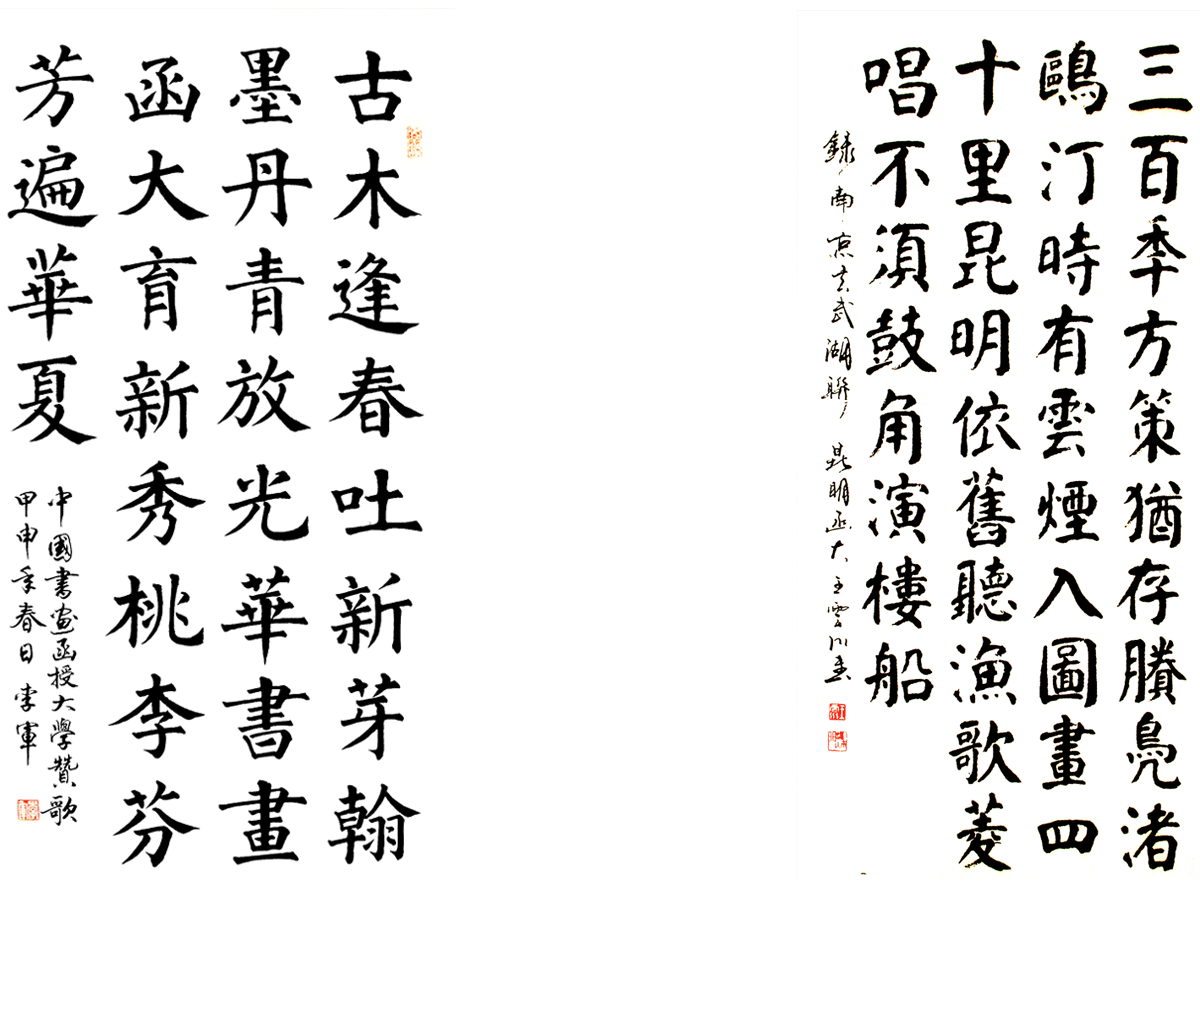 三百年方策猶存賸鳧渚
鷗汀時有雲煙入圖畫四
十里昆明依舊聽漁歌菱
唱不須鼓角演樓船
錄南京玄武湖聯 昆明函大王雲川書
古木逢春吐新芽翰
墨丹青放光華書畫
函大育新秀桃李芬
芳遍華夏
中國書画函授大學贊歌
甲申年春日 李軍